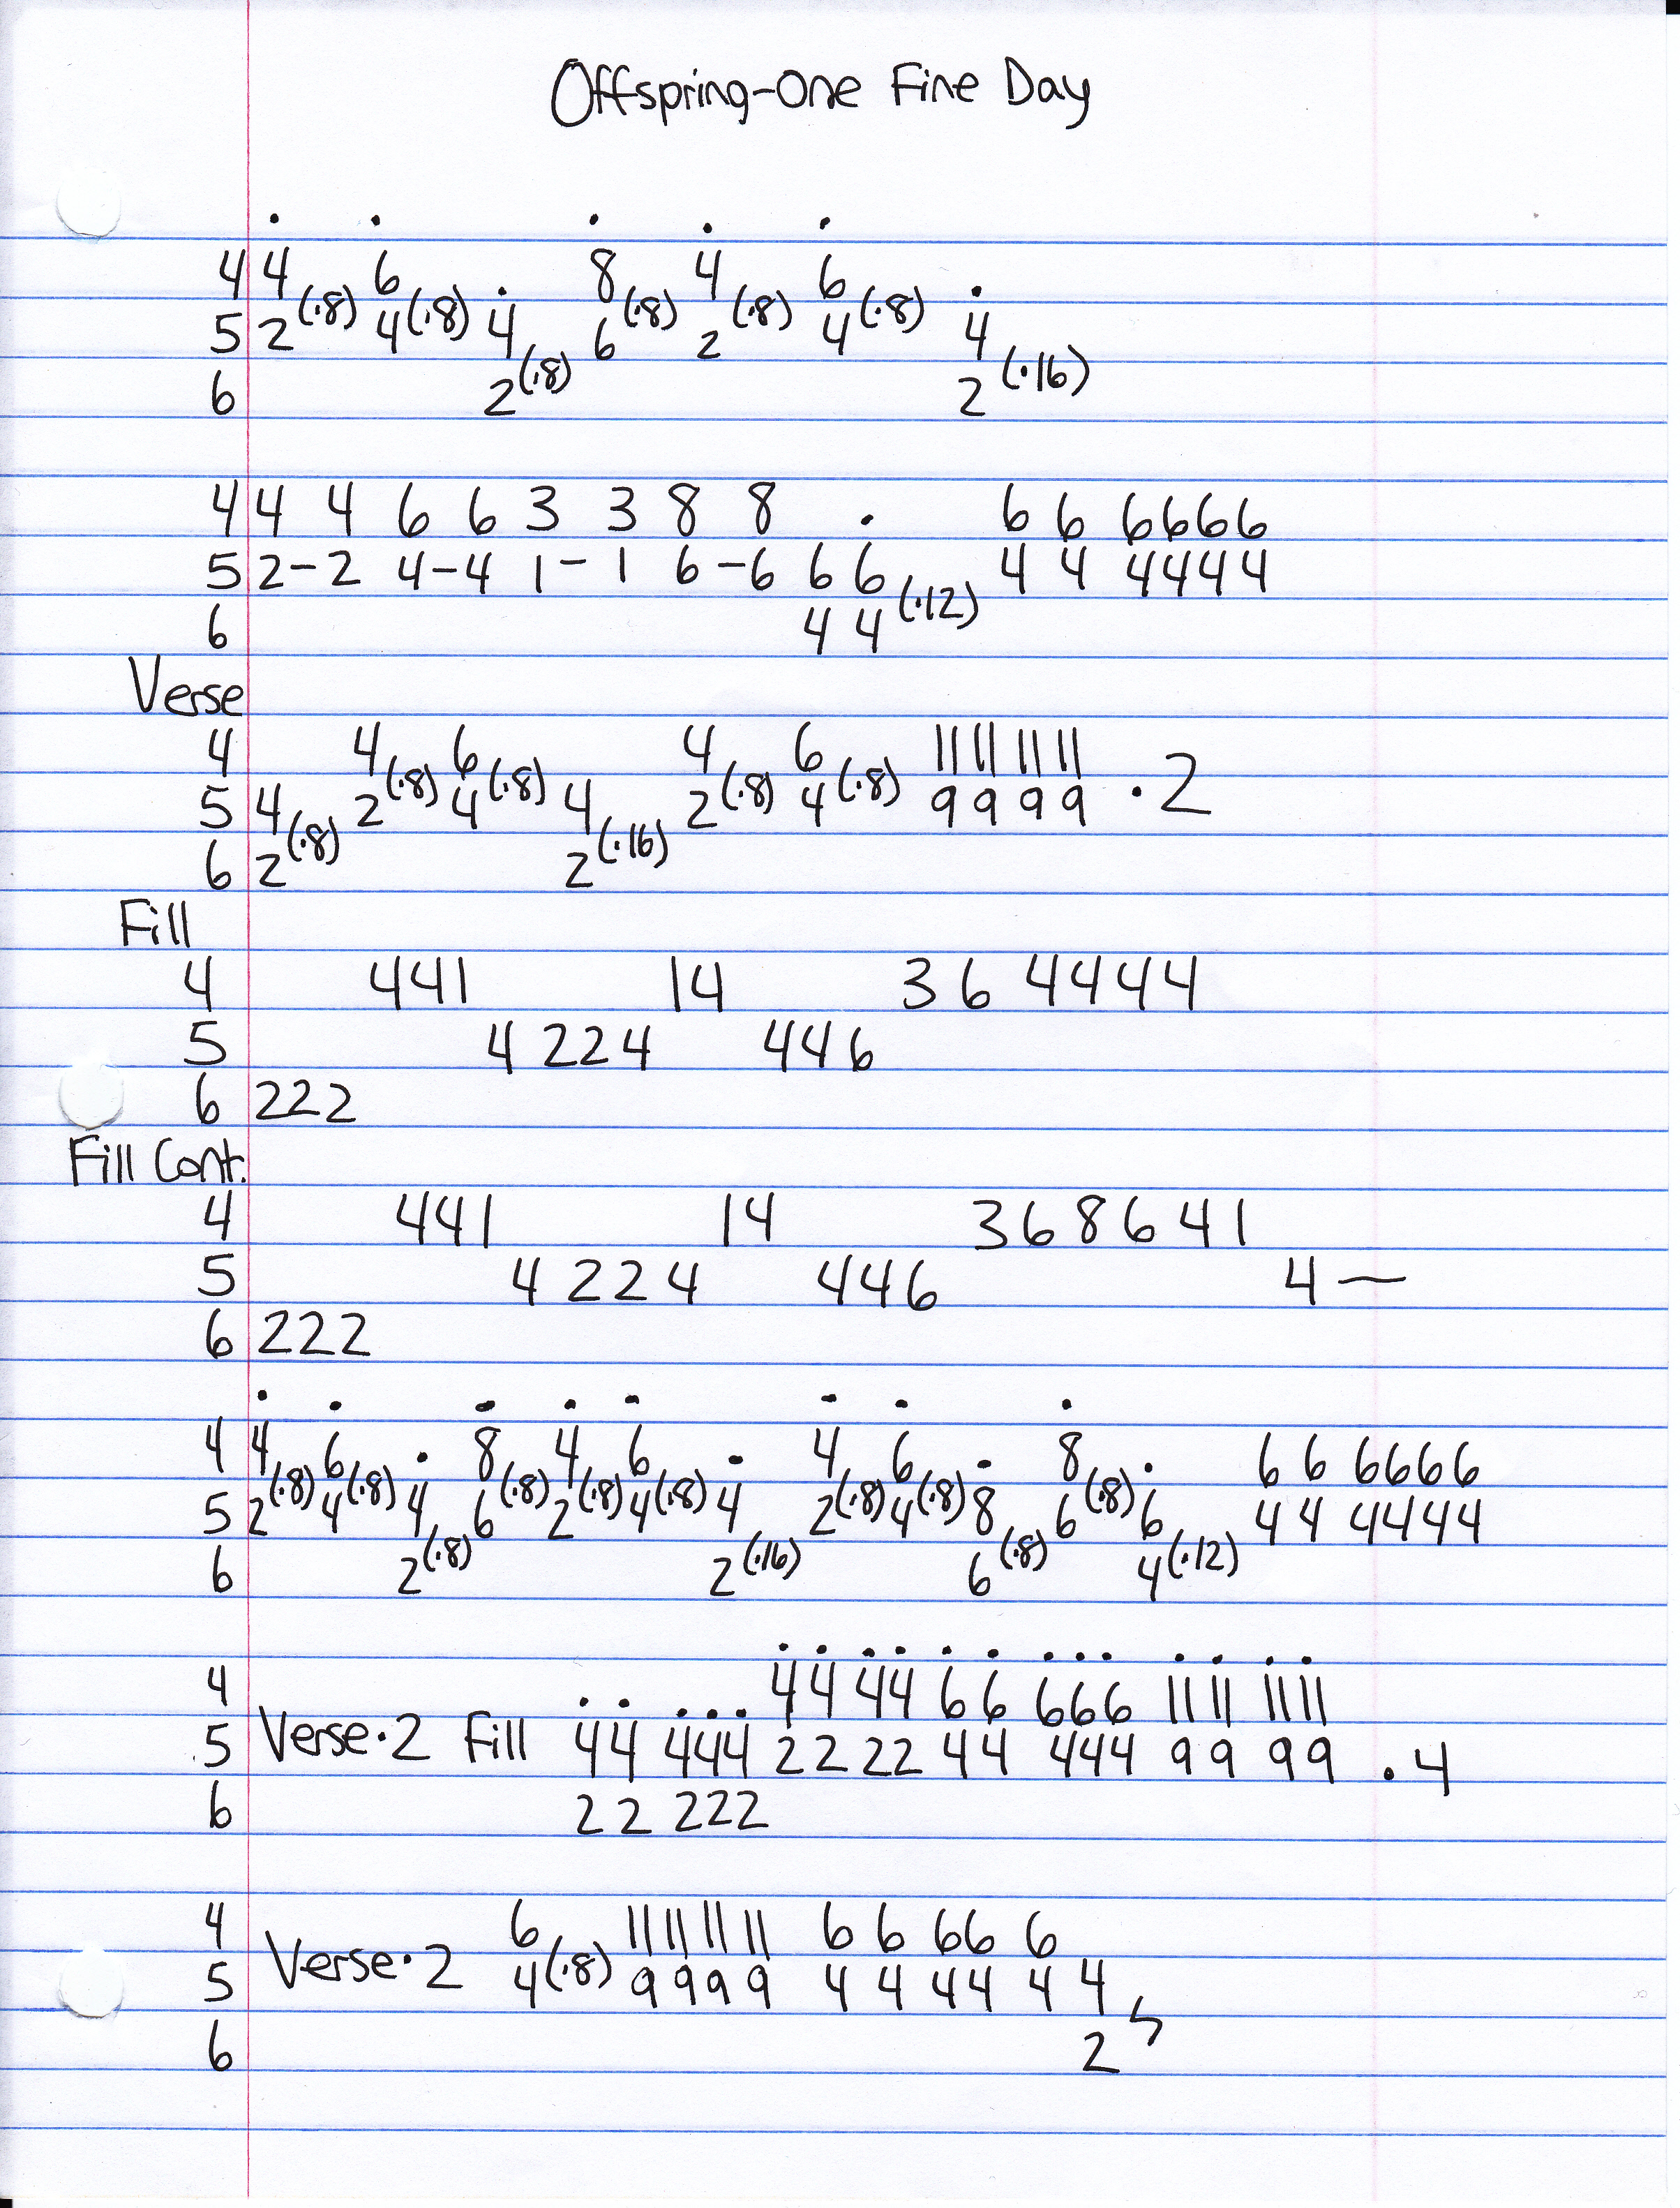 Offspring-One Fine Day
4 4(·8) 6(·8) 8(·8) 4(·8) 6(·8)
5 2 4 4(·8) 6 2 4 4(·16)
6 2 2
4 4 4 6 6 3 3 8 8 · 6 6 6666
5 2-2 4-4 1-1 6-6 6 6(·12) 4 4 4444
6 4 4
Verse
4 4(·8) 6(·8) 4(·8) 6(·8) 11 11 11 11
5 4(·8) 2 4 4(·16) 2 4 9 9 9 9 ·2
6 2 2
Fill
4 441 14 3 6 4444
5 4 224 446
6 222
Fill Cont.
4 441 14 368641
5 4 224 446 4—
6 222
4 4(·8) 6(·8) · 8(·8) 4(·8) 6(·8) · 4(·8) 6(·8) · 8(·8) · 6 6 6666
5 2 4 4(·8) 6 2 4 4(·16) 2 4 8(·8) 6 6(·12) 4 4 4444
6 2 2 6 4
4 44 44 66 666 11 11 11 11
5 Verse·2 Fill 44 444 22 22 44 444 99 99 ·4
6 22 222
4 6 11 11 11 11 6 6 66 6
5 Verse·2 4(·8) 9999 4 4 44 4 4
6 2